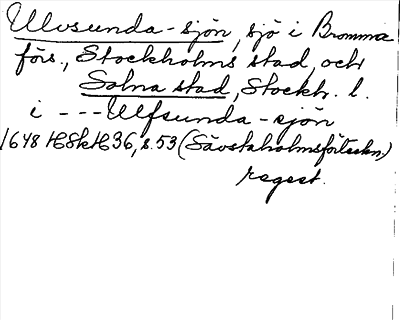 Ulvsunda-sjön, sjö i Bromma
förs., Stockholms stad, och
Solna stad, Stockh. l.
i --- Ulfsunda-sjön
1648 HSkH36, s. 53 (Sävstaholmsförteckn.)
regest.